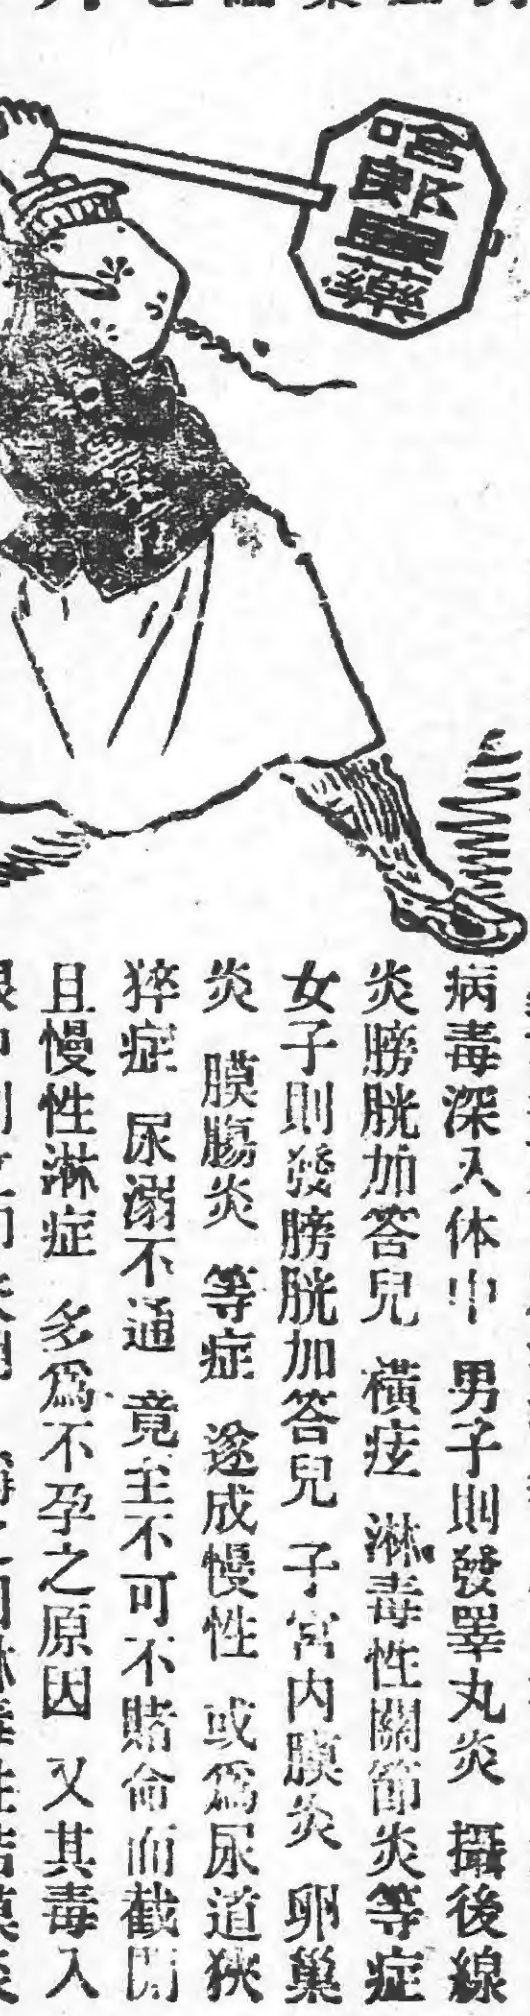 哈郎興藥
病毒深入体中 男子則發睪丸炎 攝後線
炎膀胱加答兒 橫痃 淋毒性關節炎等症
女子則發膀胱加答兒 子宮内膜炎 卵巢
炎 膜腸炎 等症 遂成慢性 或爲尿道狹
猝症 尿溺不通 竟至不可不賭命而截開
且慢性淋症 多爲不孕之原因 又其毒入